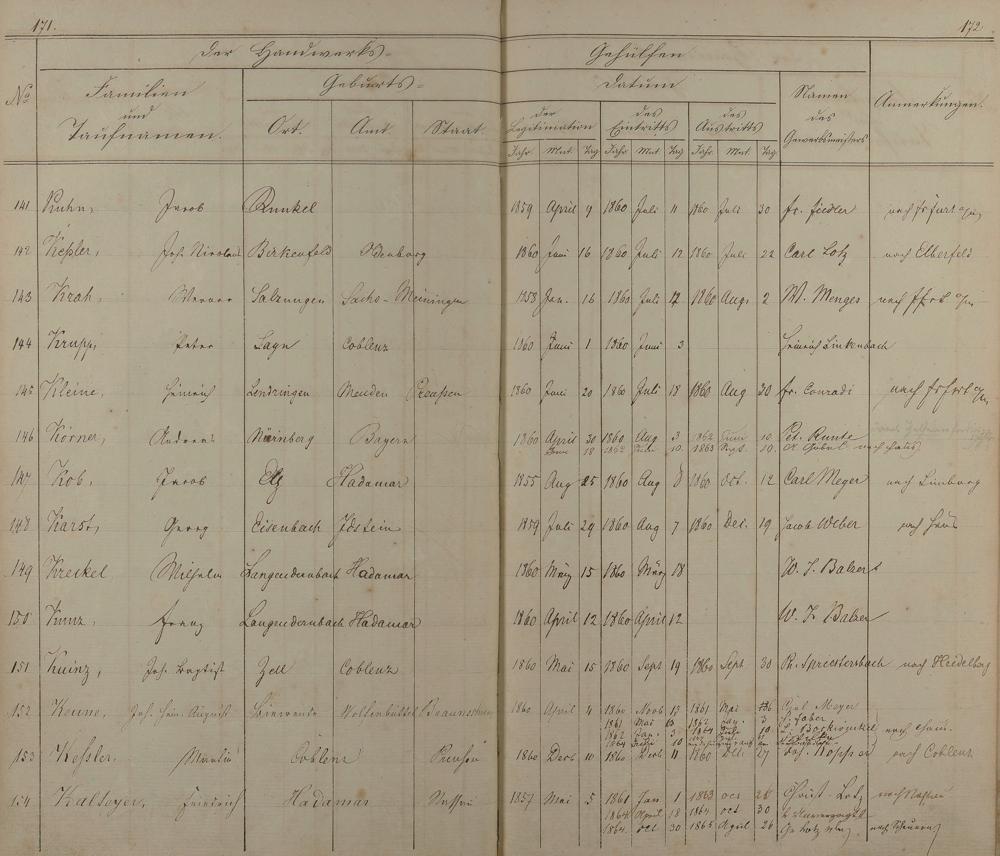 171.
172
der Handwerks-
Gehülfen
No
Familien
und
Taufnamen.
Geburts-
Ort. Amt. Staat.
Datum
der Legitimation des Eintritts des Austritts
Jahr Mnt. Tag Jahr Mnt Tag Jahr Mnt. Tag
Namen
des
Gewerbsmeisters
Anmerkungen.
141 Kuhn, Jacob Runkel 1859 April 9 1860 Juli 11 1860 Juli 30 Fr. Fiedler nach
142 Keßler, Joh. Nicolaus Birkenfeld Oldenburg 1860 Juni 16 1860 Juli 12 1860 Juli 22 Carl Lotz nach Elberfeld
143 Krah, Werner Salzungen Sachs-Meiningen 1853 Jan. 16 1860 Juli 17 1860 Aug. 2 W. Menges nach
144 Krupp, Peter Laye Coblenz 1860 Juni 1 1860 Juni 3 Heinrich Linkenbach
145 Kleine, Heinrich Lendringen Menden Preußen 1860 Juni 20 1860 Juli 18 1860 Aug 30 Fr. Conradi nach
146 Körner, Andreas Nürnberg Bayern 1860 April 30 1860 Aug 3 1862 Juni 10 Pet. Runte
18 1862 10. 1863 Sept. 10. Göbel nach Haus
147 Kob, Jacob Elz Hadamar 1855 Aug 25 1860 Aug 8 1860 Oct. 12 Carl Meyer nach Limburg
148 Karst, Georg Eisenbach Idstein 1859 Juli 29 1860 Aug 7 1860 Dec. 19 Jacob Weber nach Haus
149 Kreckel Wilhelm Langendernbach Hadamar 1860 März 15 1860 März 18 W. J. Balzert
150 Kunz, Franz Langendernbach Hadamar 1860 April 12 1860 April 12 W. J. Balzer
151 Kuinz, Joh. Baptist Zell Coblenz 1860 Mai 15 1860 Sept 19 1860 Sept 30 R. Spriestersbach nach Heidelberg
152 Keune, Joh. Hein. August Wolfenbüttel Braunschw 1860 April 4 1860 Novb 17 1861 Mai Carl Meyer
1861 Mai 13 1862 Jan. 3 Faber
1862 Jan. 3 1864 10 nach
1864 10
153 Keßler. Martin Coblenz Preußen 1860 Decb 10 1860 Decb 11 1860 Dec 27 nach Coblenz
154 Kalteyer, Friedrich Hadamar Nassau 1857 Mai 5 1861 Jan. 1 1863 oct 28 Christ. Lotz nach Nassau
1864 April 18 1864 oct 30
1864. oct 30 1865 April 26 nach Scheuern